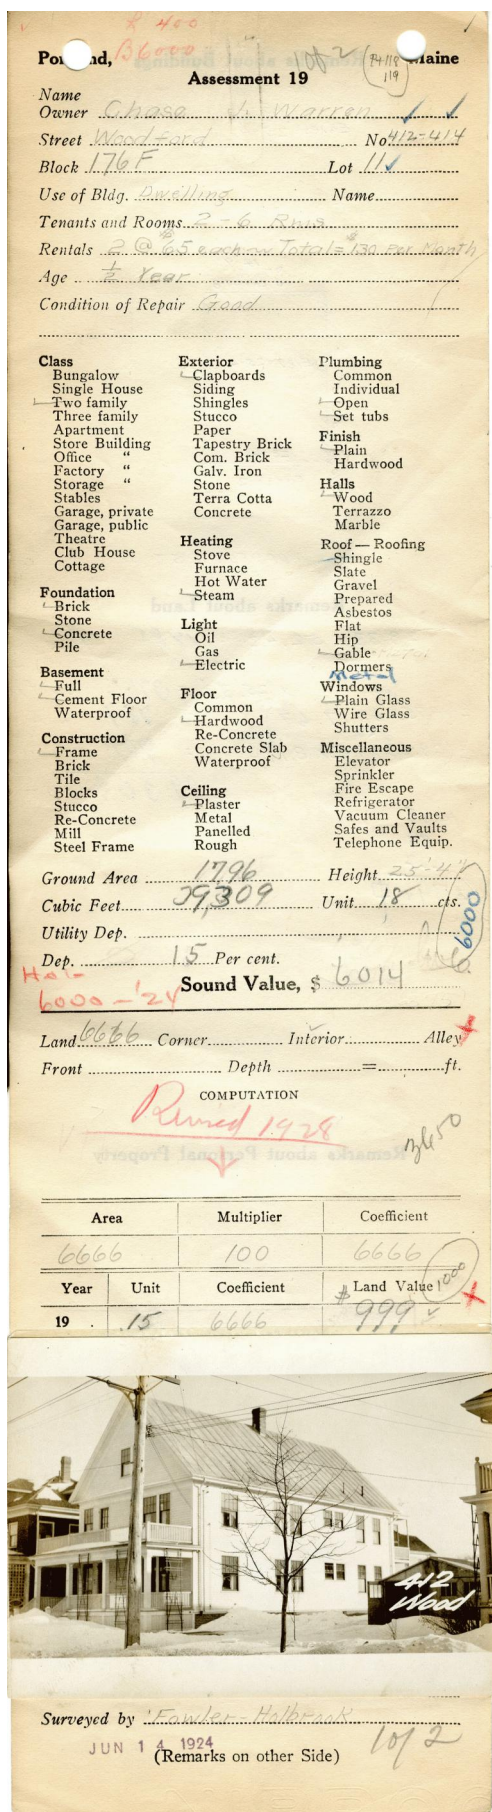 R 400
B6000
1 of 2
P4118
119
Portland, Maine
Assessment 19
Name
Owner Chase J. Warren
Street Woodford No. 412-414
Block 176 F Lot 11
Use of Bldg. Dwelling Name
Tenants and Rooms 2 - 6 Rms
Rentals 2 @ $65 each on Total = $130 Per Month
Age 1/2 Year
Condition of Repair Good
Class
Bungalow
Single House
Two family
Three family
Apartment
Store Building
Office "
Factory "
Storage "
Stables
Garage, private
Garage, public
Theatre
Club House
Cottage
Foundation
Brick
Stone
Concrete
Pile
Basement
Full
Cement Floor
Waterproof
Construction
Frame
Brick
Tile
Blocks
Stucco
Re-Concrete
Mill
Steel Frame
Exterior
Clapboards
Siding
Shingles
Stucco
Paper
Tapestry Brick
Com. Brick
Galv. Iron
Stone
Terra Cotta
Concrete
Heating
Stove
Furnace
Hot Water
Steam
Light
Oil
Gas
Electric
Floor
Common
Hardwood
Re-Concrete
Concrete Slab
Waterproof
Ceiling
Plaster
Metal
Panelled
Rough
Plumbing
Common
Individual
Open
Set tubs
Finish
Plain
Hardwood
Halls
Wood
Terrazzo
Marble
Roof — Roofing
Shingle
Slate
Gravel
Prepared
Asbestos
Flat
Hip
Gable
Dormers
Metal
Windows
Plain Glass
Wire Glass
Shutters
Miscellaneous
Elevator
Sprinkler
Fire Escape
Refrigerator
Vacuum Cleaner
Safes and Vaults
Telephone Equip.
Ground Area 1796 Height 25'-4"
Cubic Feet 39,309 Unit 18 cts.
6000
Utility Dep.
Dep. 15 Per cent.
Sound Value, $ 6014
6000 - '24
Land 6666 Corner Interior Alley
Front Depth = ft.
COMPUTATION
Revised 1928
3650
Area Multiplier Coefficient
6666 100 6666
Year Unit Coefficient Land Value
1000
19 . .15 6666 $ 999
412
Wood
Surveyed by Fowler - Holbrook
JUN 14 1924
(Remarks on other Side)
1 of 2